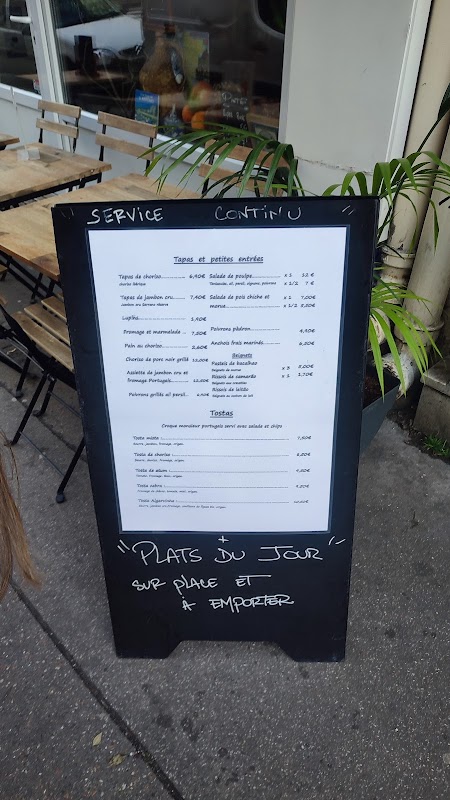 " SERVICE CONTINU "
Tapas et petites entrées
Tapas de chorizo 6,90€
chorizo ibérique
Tapas de jambon cru 7,40€
Jambon cru Serrano réserve
Lupins 1,90€
Fromage et marmelade 7,20€
Pain au chorizo 2,60€
Chorizo de porc noir grillé 12,00€
Assiette de jambon cru et
fromage Portugais 12,50€
Poivrons grillés ail persil
Salade de poulpe x 1 12 €
x 1/2 7 €
Salade de pois chiche et x 1 7,00€
morue x 1/2
Poivrons pádron 4,90€
Anchois frais marinés 6,20€
Beignets
Pasteis de bacalhau x 3
Beignets de morue
Rissois de camarão x 1 1,70€
Beignets aux crevettes
Rissois de leitão
Beignets au cochon de lait
Tostas
Croque monsieur portugais servi avec salade et chips
Tosta mista : 7,50€
Tosta de chorizo :
Tosta de atum :
Tosta cabra :
Tosta Algarvinha :
+
" PLATS DU JOUR "
SUR PLACE ET
À EMPORTER